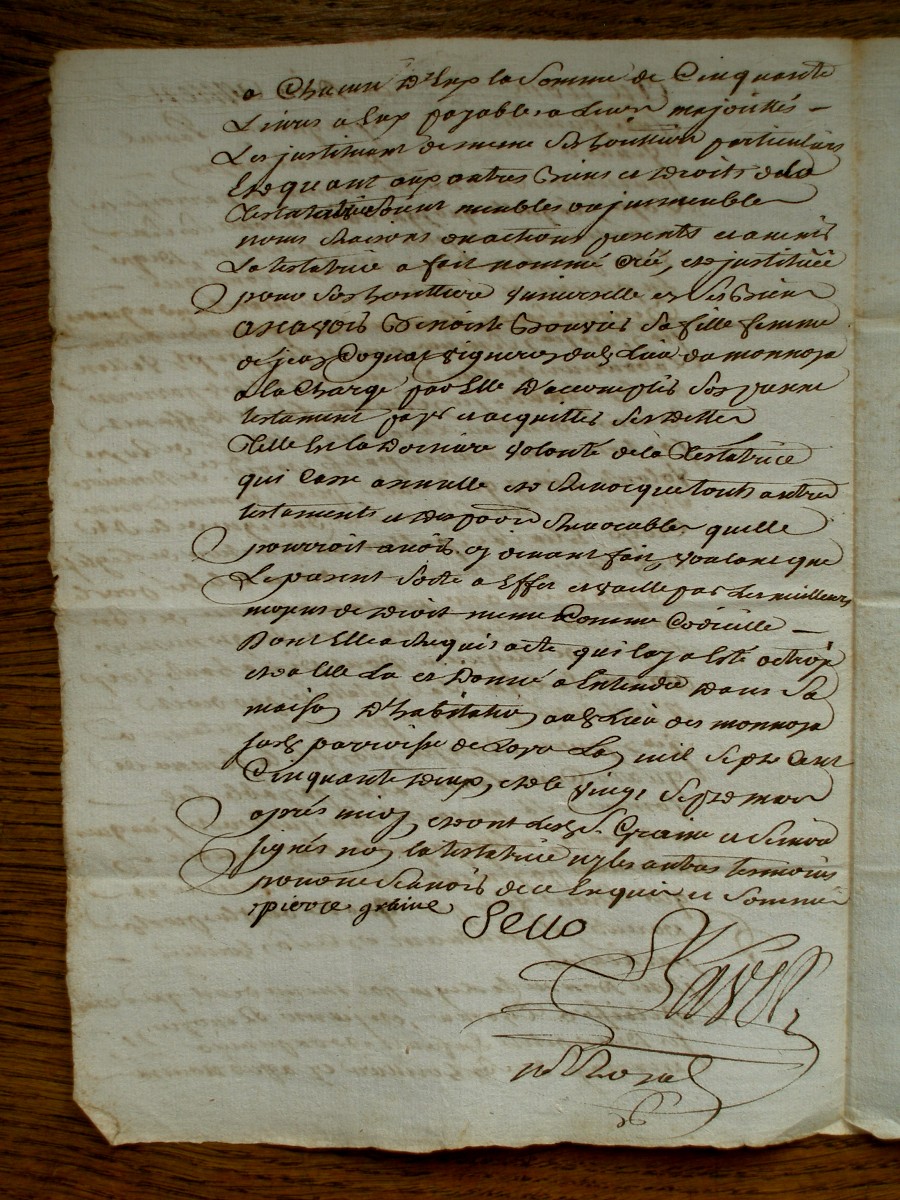 a Chacun D'Eux la Somme de Cinquante
Livres a Eux payable a Leur majorittés —
Les justituant de meme Ses heuttiers particuliers
Et quant aux autres Biens et Droits de la
Testatrice Soient meubles ou jmmeubles
noms Raisons et actions presents et avenir
La testatrice a fait nommé Créé, et justituée
pour Ses heuttiere Vniverselle en Ses Biens
Benoiste Sa fille femme
de jean Coquat vigneron dud. Lieu du monnoja
a la Charge par Elle D'accomplir Son
testament payer et acquitter Ses Dettes
Telle Est la Derniere Volonté de la Testatrice
qui Casse annulle et Revocque touts autres
testaments et Dispositions Revocables quelle
pourroit avoir cy devant fait Voulant que
Le present Sorte a Effet et vaille par Les meilleurs
moyens de Droit meme Comme Codicille —
Dont Elle a Requis acte qui luy a Esté octroyé
et a Elle Lu et Donné a Entendre Dans Sa
maison D'habitation aud. Lieu du monnoja
jusd. parroisse de Loyre Lan mil Sept Cent
Cinquante Deux, et le vingt Sept mars
apres midy, et ont Lesd. Srs. Graine et
signés non la testatrice ny les autres temoins
pour ne Scavoir de ce Enquis et Sommés
pierre graine